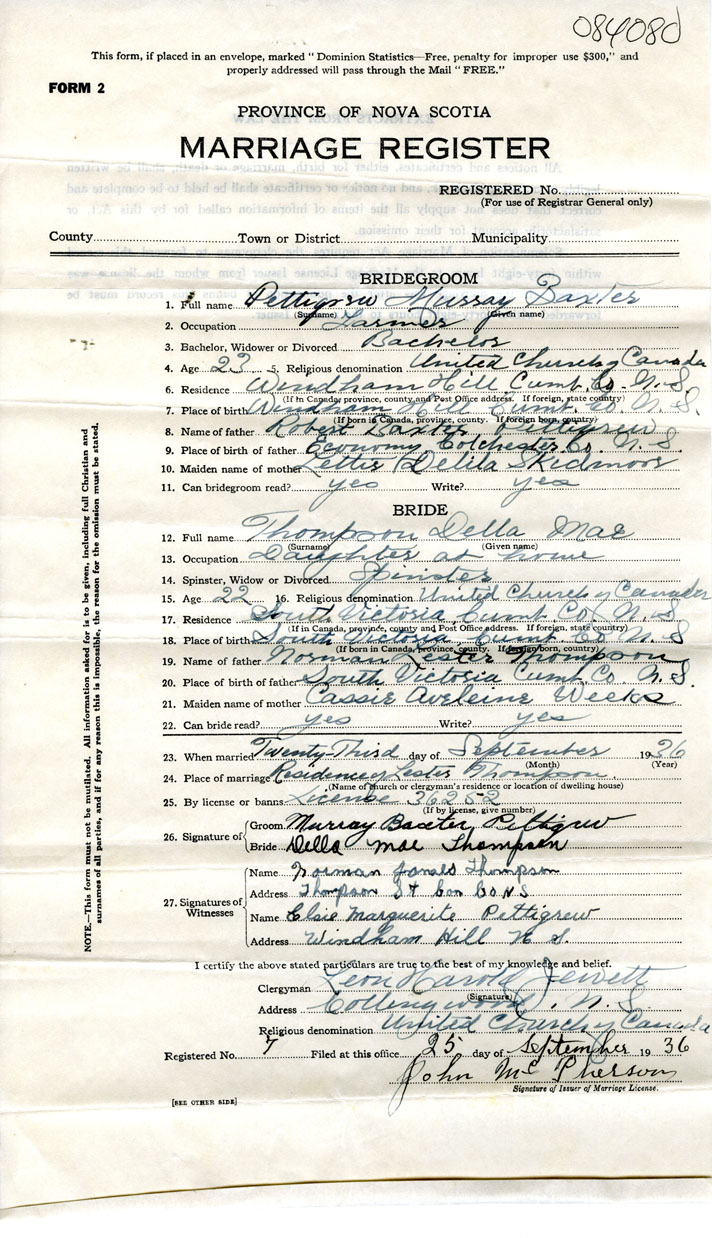 084080
This form, if placed in an envelope, marked "Dominion Statistics—Free, penalty for improper use $300," and
properly addressed will pass through the Mail "FREE."
FORM 2
PROVINCE OF NOVA SCOTIA
MARRIAGE REGISTER
REGISTERED No.
(For use of Registrar General only)
County Town or District Municipality
BRIDEGROOM
1. Full name Pettigrew Murray Baxter
(Surname) (Given name)
2. Occupation Farmer
3. Bachelor, Widower or Divorced Bachelor
4. Age 23 5. Religious denomination United Church of Canada
6. Residence Windham Hill Cumb. Co. N.S.
(If in Canada, province, county and Post Office address. If foreign, state country)
7. Place of birth Windham Hill Cumb. Co. N.S.
(If born in Canada, province, county. If foreign born, country)
8. Name of father Robert Baxter Pettigrew
9. Place of birth of father Economy Colchester Co. N.S.
10. Maiden name of mother Lettie Delila Skidmore
11. Can bridegroom read? yes Write? yes
BRIDE
12. Full name Thompson Della Mae
(Surname) (Given name)
13. Occupation Daughter at home
14. Spinster, Widow or Divorced Spinster
15. Age 22 16. Religious denomination United Church of Canada
17. Residence South Victoria, Cumb. Co. N.S.
(If in Canada, province, county and Post Office address. If foreign, state country)
18. Place of birth South Victoria Cumb. Co. N.S
(If born in Canada, province, county. If foreign born, country)
19. Name of father Norman Lester Thompson
20. Place of birth of father South Victoria Cumb Co. N.S.
21. Maiden name of mother Cassie Aveleine Weeks
22. Can bride read? yes Write? yes
23. When married Twenty-Third day of September 1936
(Month) (Year)
24. Place of marriage Residence of Lester Thompson
(Name of church or clergyman's residence or location of dwelling house)
25. By license or banns License 36252
(If by license, give number)
26. Signature of Groom Murray Baxter Pettigrew
Bride Della Mae Thompson
27. Signatures of Witnesses
Name Norman Thompson
Address Thompson St N S
Name Elsie Marguerite Pettigrew
Address Windham Hill N. S.
I certify the above stated particulars are true to the best of my knowledge and belief.
Clergyman Leon Harold Jewett
(Signature)
Address Collingwood, N.S.
Religious denomination United Church of Canada
Registered No. 7 Filed at this office 25 day of September 1936
John McPherson
Signature of Issuer of Marriage License.
[SEE OTHER SIDE]
NOTE.—This form must not be mutilated. All information asked for is to be given, including full Christian and
surnames of all parties, and if for any reason this is impossible, the reason for the omission must be stated.